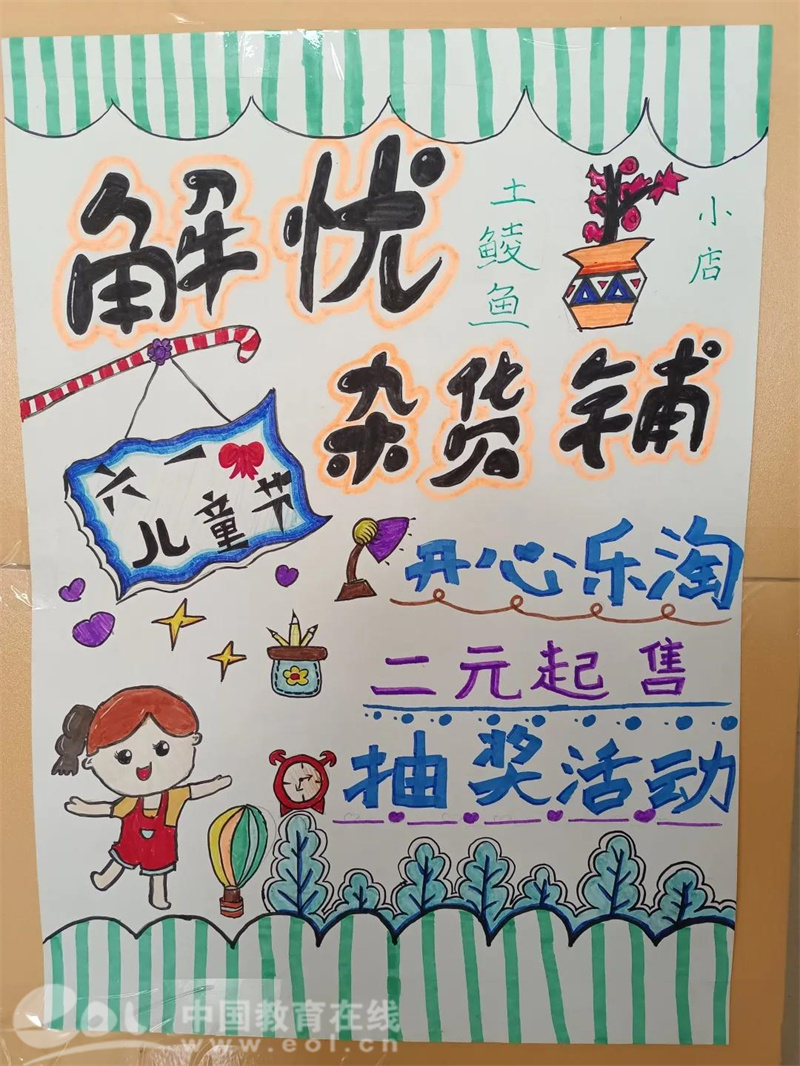 解忧
土鲮鱼
小店
杂货铺
六一
儿童节
开心乐淘
二元起售
抽奖活动
eol 中国教育在线
www.eol.cn